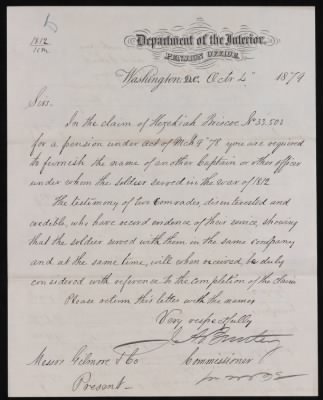 1812
Department of the Interior,
PENSION OFFICE,
Washington, D.C. Octr 4" 1879
Sirs.
In the claim of Hezekiah Briscoe No 33.503
for a pension under act of Mch 9" '78 you are required
to furnish the name of another Captain or other officer
under whom the soldier served in the war of 1812
The testimony of two Comrades, disinterested and
credible, who have record evidence of their service, showing
that the soldier served with them in the same company
and at the same time, will when received, be duly
considered with reference to the completion of the claim
Please return this letter with the names
Very respectfully
Commissioner
Messrs Gilmore & Co
Present.